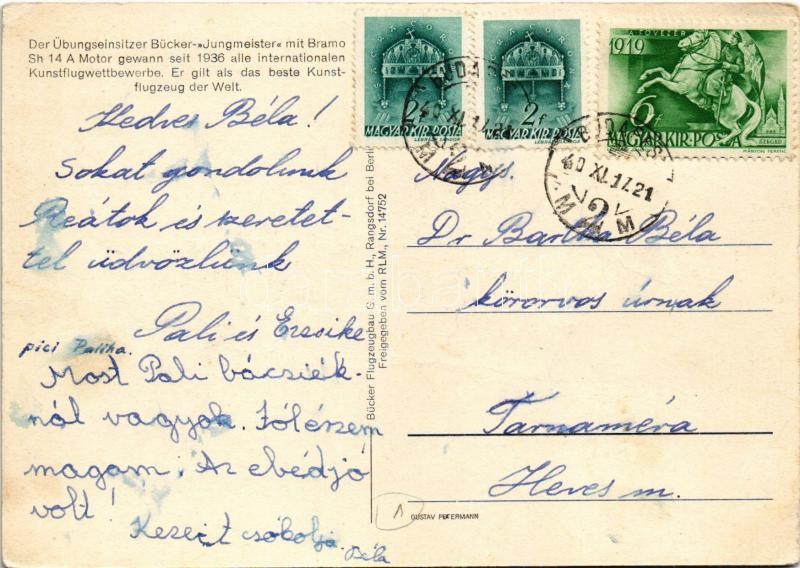 Der Übungseinsitzer Bücker-»Jungmeister« mit Bramo
Sh 14 A Motor gewann seit 1936 alle internationalen
Kunstflugwettbewerbe. Er gilt als das beste Kunst-
flugzeug der Welt.
Kedves Béla!
Sokat gondolunk
Reátok és szeretet-
tel üdvözlünk
Pali és Erzsike
pici Palika.
Most Pali bácsiék-
nál vagyok. Jól érzem
magam. Az ebéd jó
volt!
Kezeit csókolja
Béla
Bücker Flugzeugbau G. m. b. H., Rangsdorf bei Berlin
Freigegeben vom RLM., Nr. 14752
2f
MAGYAR KIR. POSTA
2f
MAGYAR KIR. POSTA
A FŐVEZÉR
1919
6f
MAGYAR KIR. POSTA
SZEGED
40 XI. 17. 21
Nagys.
Dr Bartha Béla
körorvos úrnak
Tarnaméra
Heves m.
1
GUSTAV PETERMANN